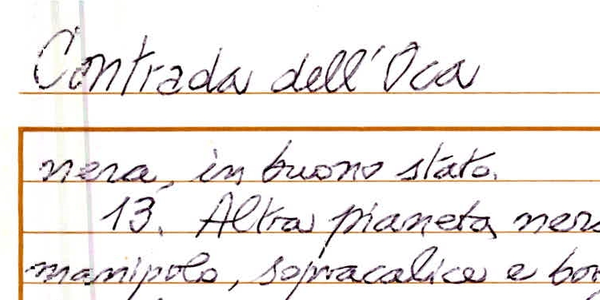 Contrada dell'Oca
nera, in buono stato.
13. Altra pianeta nera
manipolo, sopracalice e